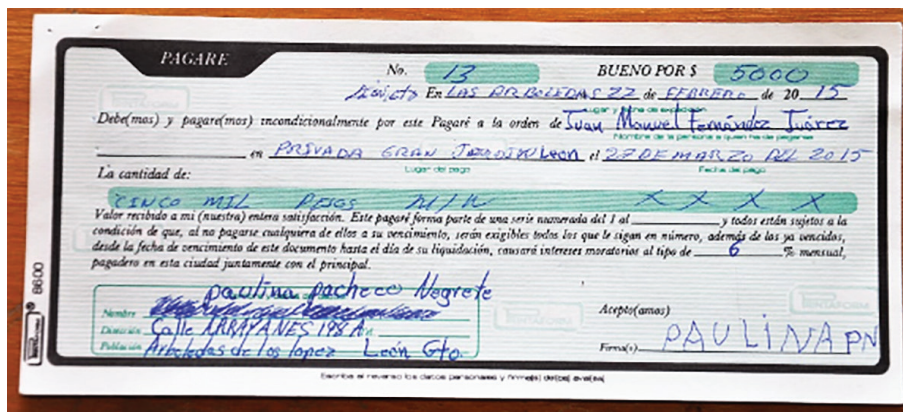 PAGARE
No. 13 BUENO POR $ 5000
En LAS ARBOLEDAS 22 de FEBRERO de 20 15
Lugar y fecha de expedición
Debe(mos) y pagare(mos) incondicionalmente por este Pagaré a la orden de Juan Manuel Fernández Juárez
Nombre de la persona a quien ha de pagarse
en PRIVADA GRAN JARDIN León el 27 DE MARZO DEL 2015
Lugar del pago Fecha del pago
La cantidad de:
CINCO MIL PESOS M/N X X X X
Valor recibido a mi (nuestra) entera satisfacción. Este pagaré forma parte de una serie numerada del 1 al y todos están sujetos a la
condición de que, al no pagarse cualquiera de ellos a su vencimiento, serán exigibles todos los que le sigan en número, además de los ya vencidos,
desde la fecha de vencimiento de este documento hasta el día de su liquidación, causará intereses moratorios al tipo de 6 % mensual,
pagadero en esta ciudad juntamente con el principal.
paulina pacheco Negrete
Nombre
Acepto(amos)
Dirección Calle ARRAYANES 198 A
Población Arboledas de los lopez León Gto.
Firma(s) PAULINA PN
Escriba al reverso los datos personales y firma(s) del(os) aval(es)
8600